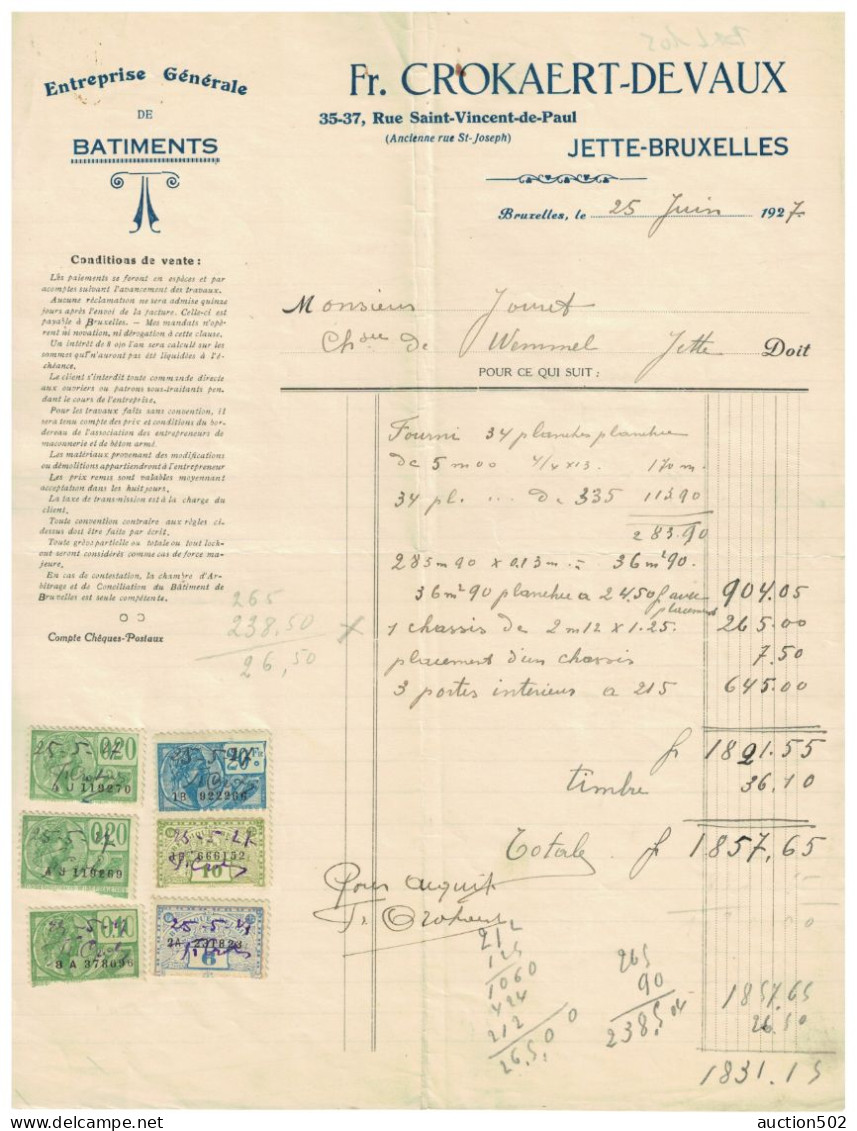 Entreprise Générale
DE
BATIMENTS
Fr. CROKAERT-DEVAUX
35-37, Rue Saint-Vincent-de-Paul
(Ancienne rue St-Joseph)
JETTE-BRUXELLES
Bruxelles, le 25 Juin 1927
Conditions de vente :
Les paiements se feront en espèces et par
acomptes suivant l'avancement des travaux.
Aucune réclamation ne sera admise quinze
jours après l'envoi de la facture. Celle-ci est
payable à Bruxelles. - Mes mandats n'opè-
rent ni novation, ni dérogation à cette clause.
Un intérêt de 8 o/o l'an sera calculé sur les
sommes qui n'auront pas été liquidées à l'é-
chéance.
Le client s'interdit toute commande directe
aux ouvriers ou patrons sous-traitants pen-
dant le cours de l'entreprise.
Pour les travaux faits sans convention, il
sera tenu compte des prix et conditions du bor-
dereau de l'association des entrepreneurs de
maçonnerie et de béton armé.
Les matériaux provenant des modifications
ou démolitions appartiendront à l'entrepreneur
Les prix remis sont valables moyennant
acceptation dans les huit jours.
La taxe de transmission est à la charge du
client.
Toute convention contraire aux règles ci-
dessus doit être faite par écrit.
Toute grève partielle ou totale ou tout lock-
out seront considérés comme cas de force ma-
jeure.
En cas de contestation, la chambre d'Ar-
bitrage et de Conciliation du Bâtiment de
Bruxelles est seule compétente.
Compte Chèques-Postaux
265
238,50
26,50
Monsieur Jouret
Chsée de Wemmel Jette Doit
POUR CE QUI SUIT :
Fourni 34 planches plancher
de 5 m 00 4/4 x 13. 170 m.
34 pl. ... de 335 113.90
283.90
283 m 90 x 0.13 m = 36 m² 90.
36 m² 90 plancher a 24.50 f avec placement 904.05
x 1 chassis de 2 m 12 x 1.25. 265.00
placement d'un chassis 7.50
3 portes interieur a 215 645.00
fr 1821.55
timbre 36.10
Totale fr 1857,65
Pour acquit
Fr Crokaert
212
125
1060
424
212
26.500
265
90
238.5
1857.65
26.50
1831.15
25-5-27 0,20
A J 119270
25-5-27 20
1B 922296
25-5-27 0,20
A J 119269
25-5-27
666152
10
B A 378096
2A 231823
6
auction502